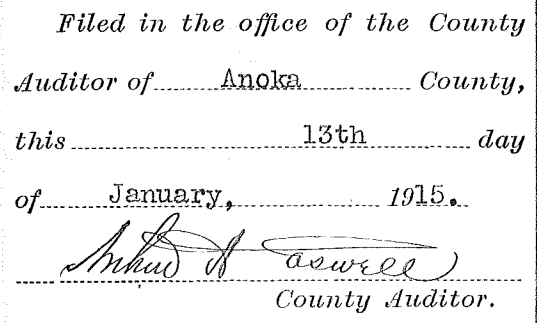 Filed in the office of the County
Auditor of Anoka County,
this 13th day
of January, 1915.
Arthur A Caswell
County Auditor.